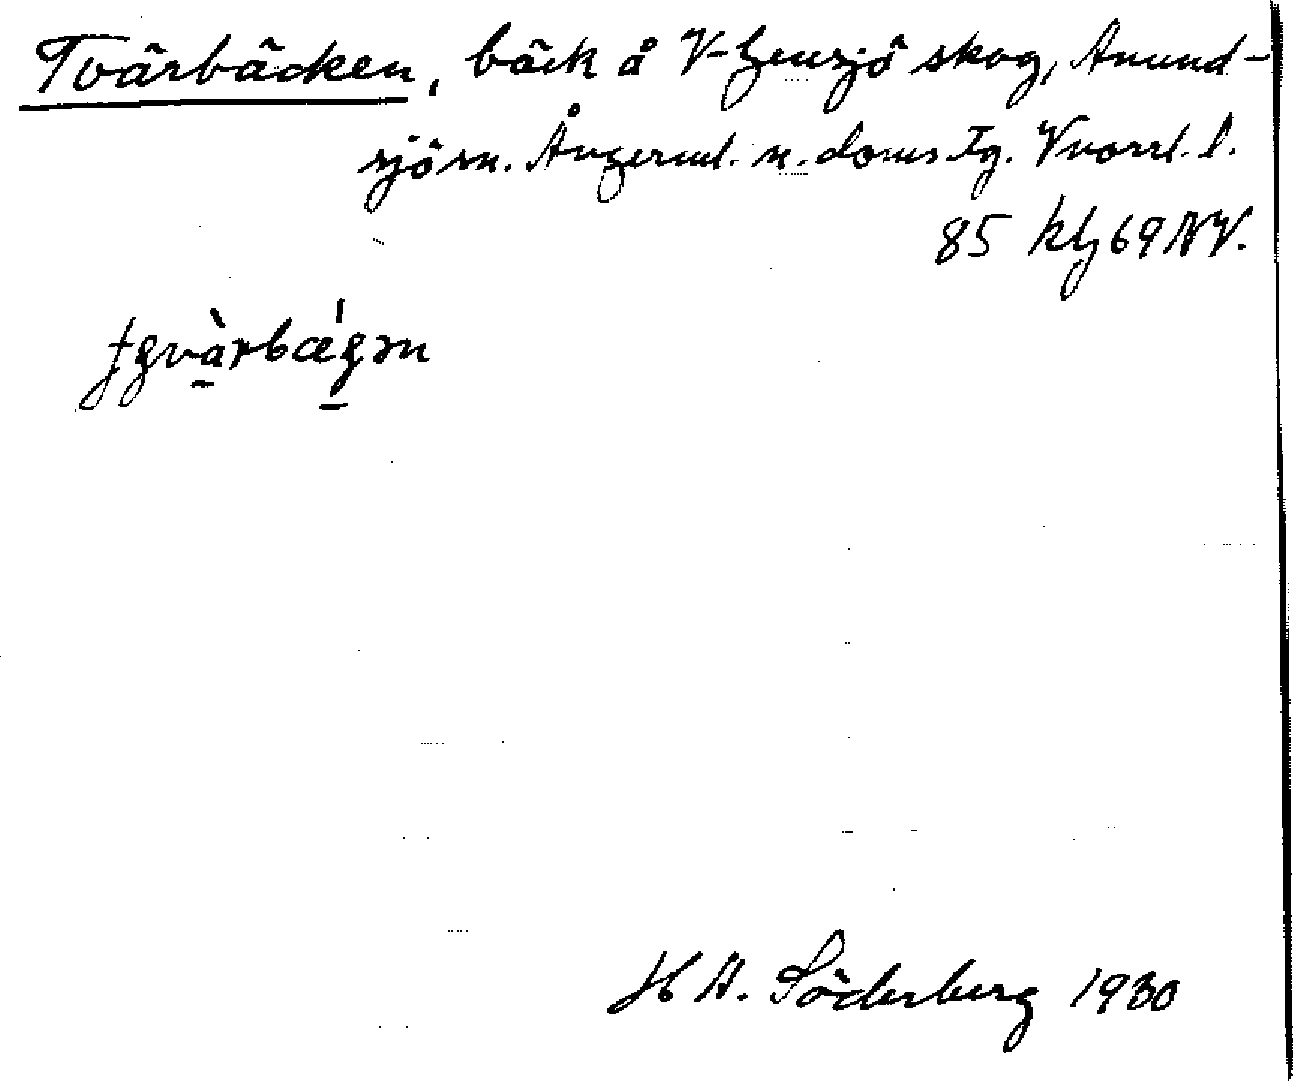 Tvärbäcken, bäck å V-Gensjö skog, Anund-
sjö sn. Ångerml. n. doms.tg. Vnorrl. l.
85 kbg 69 NV.
H A. Söderberg 1930